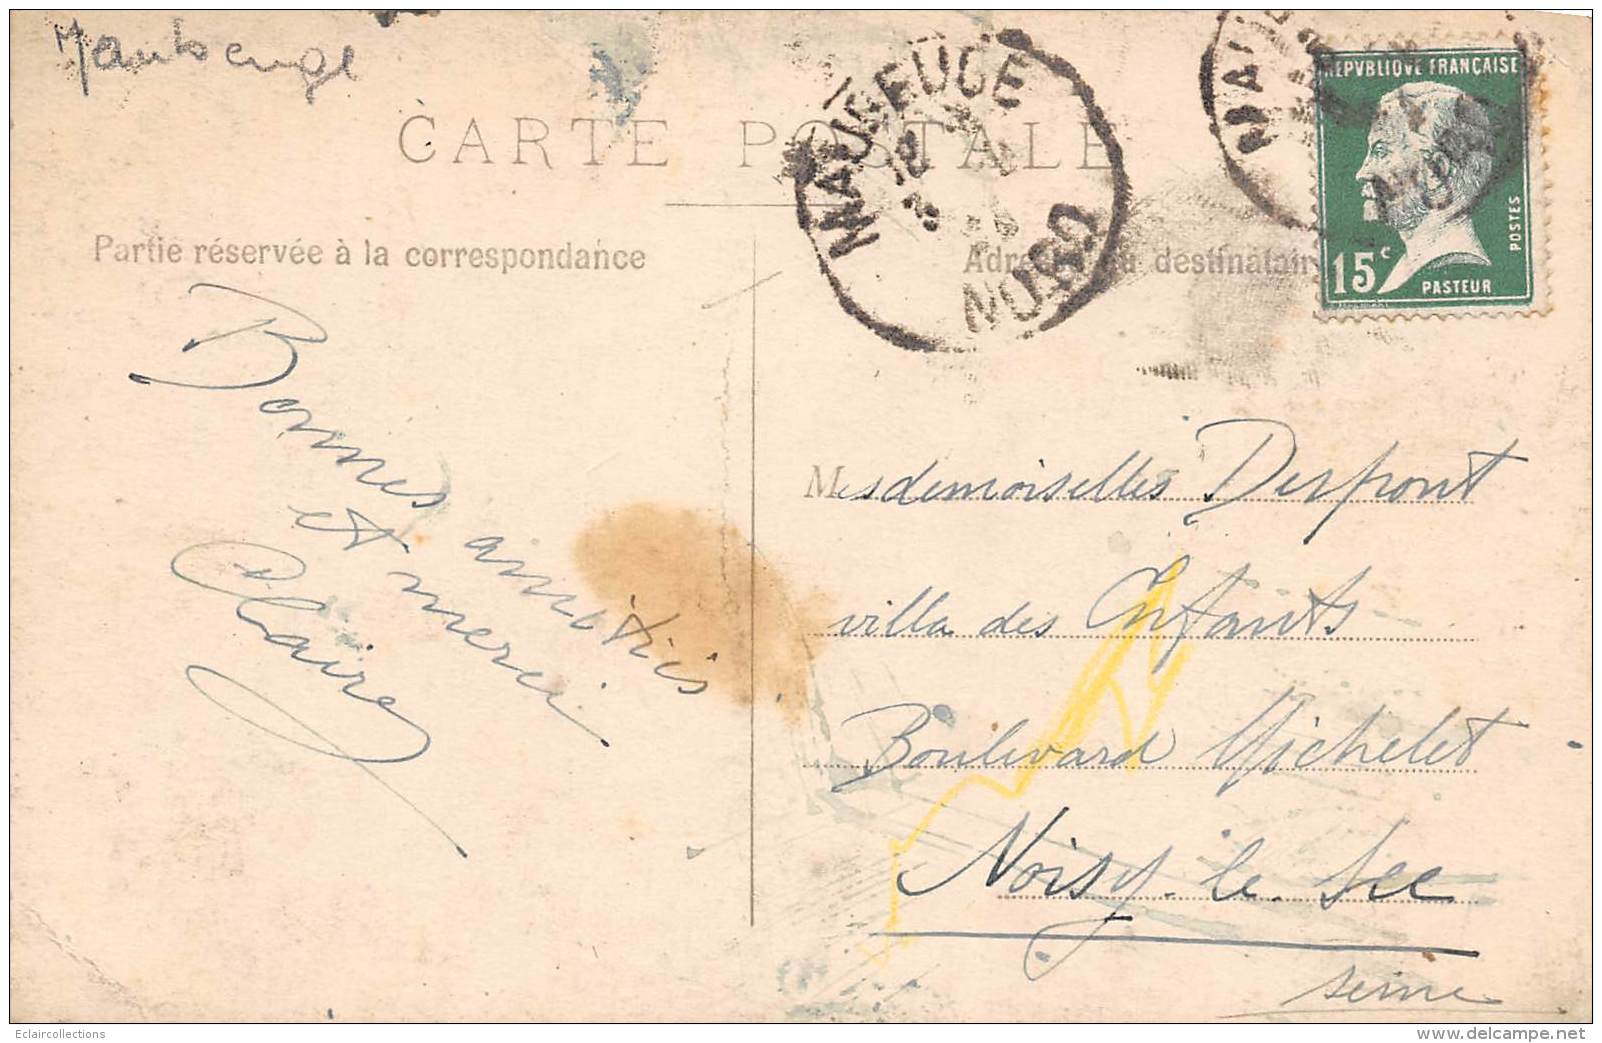 Maubeuge
CARTE POSTALE
MAUBEUGE
NORD
REPVBLIQVE FRANÇAISE
POSTES
15c
PASTEUR
Partie réservée à la correspondance
Adresse du destinataire
Bonnes amitiés
et merci
Claire
Mesdemoiselles Despont
villa des Enfants
Boulevard Michelet
Noisy-le-Sec
Seine
Eclaircollections
www.delcampe.net